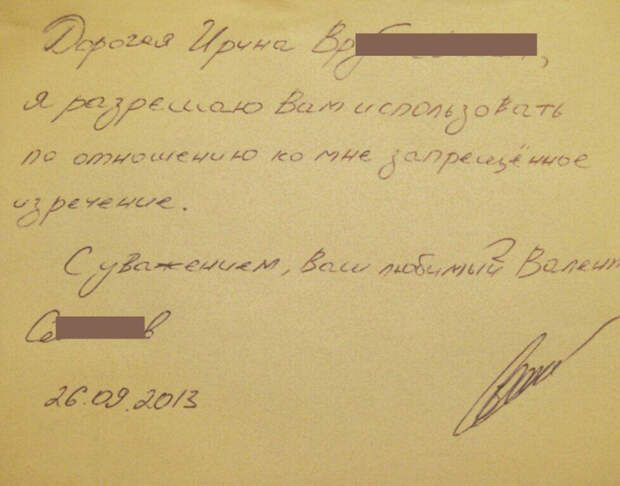 Дорогая Ирина Вру
я разрешаю Вам использовать
по отношению ко мне запрещённое
изречение.
С уважением, Ваш любимый Валент
Се в
26.09.2013